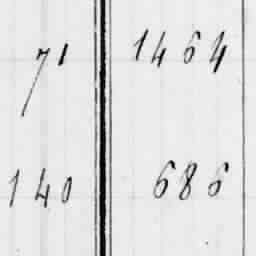 71 1464
140 686